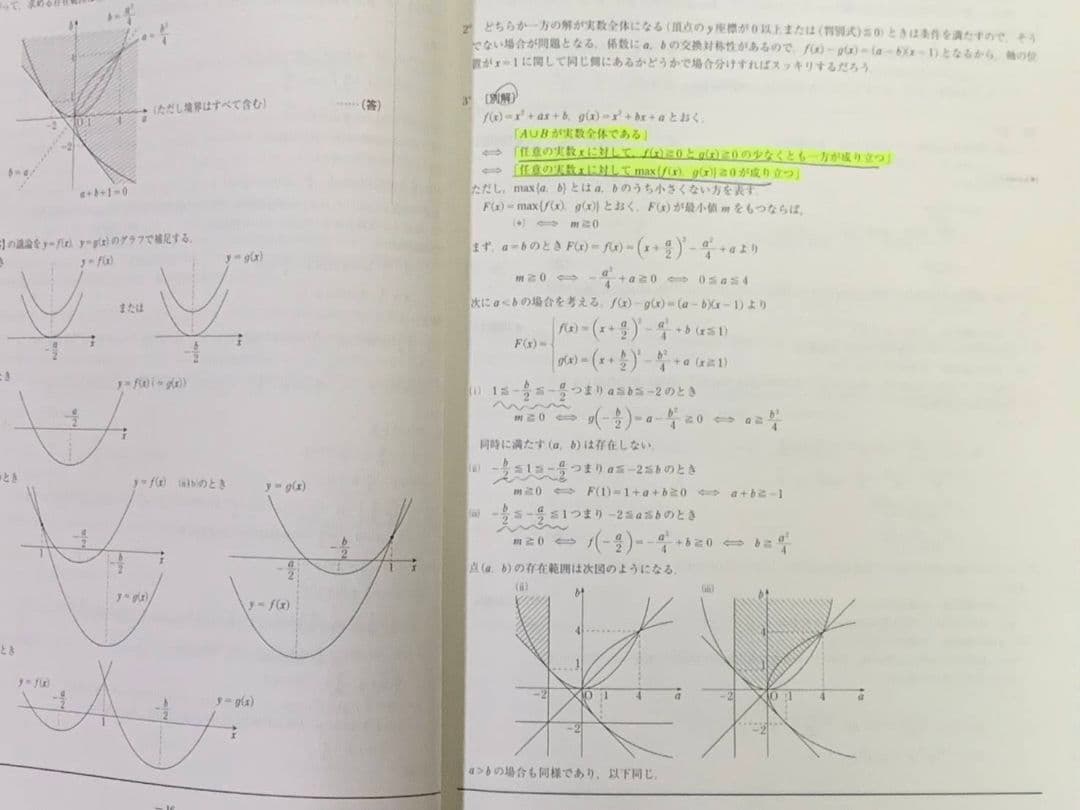 b=a²/4
a=b²/4
(ただし境界はすべて含む)
……(答)
b=a
a+b+1=0
の議論をy=f(x), y=g(x)のグラフで補足する.
y=f(x)
y=g(x)
または
-a/2
x
-b/2
x
y=f(x)(=g(x))
-a/2
x
y=f(x) (ii)(b)のとき
y=g(x)
-a/2
-b/2
1
x
y=g(x)
-a/2
-b/2
1
x
y=f(x)
y=f(x)
-a/2
1
-b/2
y=g(x)
x
2° どちらか一方の解が実数全体になる(頂点のy座標が0以上または(判別式)≦0)ときは条件を満たすので,そう
でない場合が問題となる. 係数にa, bの交換対称性があるので, f(x)-g(x)=(a-b)(x-1)となるから, 軸の位
置がx=1に関して同じ側にあるかどうかで場合分けすればスッキリするだろう.
3° [別解]
f(x)=x²+ax+b, g(x)=x²+bx+aとおく.
「A∪Bが実数全体である」
⇔ 「任意の実数xに対して, f(x)≧0とg(x)≧0の少なくとも一方が成り立つ」
⇔ 「任意の実数xに対してmax{f(x), g(x)}≧0が成り立つ」
ただし, max{a, b}とはa, bのうち小さくない方を表す.
F(x)=max{f(x), g(x)}とおく. F(x)が最小値mをもつならば,
(*) ⇔ m≧0
まず, a=bのときF(x)=f(x)=(x+a/2)²-a²/4+aより
m≧0 ⇔ -a²/4+a≧0 ⇔ 0≦a≦4
次にa<bの場合を考える. f(x)-g(x)=(a-b)(x-1)より
F(x)={f(x)=(x+a/2)²-a²/4+b (x≦1)
g(x)=(x+b/2)²-b²/4+a (x≧1)
(i) 1≦-b/2≦-a/2つまりa≦b≦-2のとき
m≧0 ⇔ g(-b/2)=a-b²/4≧0 ⇔ a≧b²/4
同時に満たす(a, b)は存在しない.
(ii) -b/2≦1≦-a/2つまりa≦-2≦bのとき
m≧0 ⇔ F(1)=1+a+b≧0 ⇔ a+b≧-1
(iii) -b/2≦-a/2≦1つまり-2≦a≦bのとき
m≧0 ⇔ f(-a/2)=-a²/4+b≧0 ⇔ b≧a²/4
点(a, b)の存在範囲は次図のようになる.
(ii) b 4 1 -2 O 1 4 a -2
(iii) b 4 1 -2 O 1 4 a -2
a>bの場合も同様であり, 以下同じ.